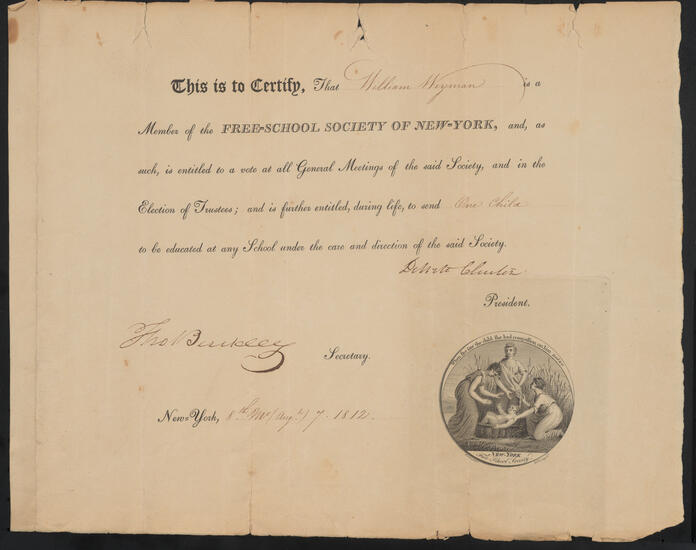 This is to Certify, That William Weyman is a
Member of the FREE-SCHOOL SOCIETY OF NEW-YORK, and, as
such, is entitled to a vote at all General Meetings of the said Society, and in the
Election of Trustees; and is further entitled, during life, to send One Child
to be educated at any School under the care and direction of the said Society.
DeWitt Clinton
President.
Tho Buckley
Secretary.
New-York, 8th Mo (Augt) 7. 1812
she saw the child, she had compassion on him
NEW-YORK
Free School Society